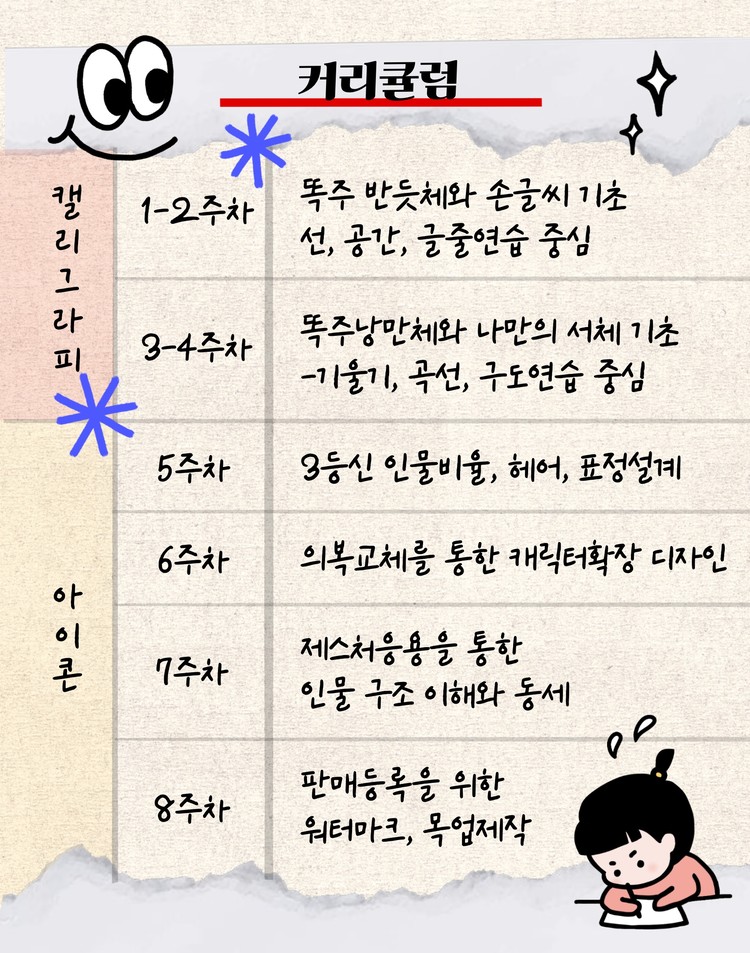 커리큘럼
캘리그라피
1-2주차
똑주 반듯체와 손글씨 기초
선, 공간, 글줄연습 중심
3-4주차
똑주낭만체와 나만의 서체 기초
-기울기, 곡선, 구도연습 중심
아이콘
5주차
3등신 인물비율, 헤어, 표정설계
6주차
의복교체를 통한 캐릭터확장 디자인
7주차
제스처응용을 통한
인물 구조 이해와 동세
8주차
판매등록을 위한
워터마크, 목업제작